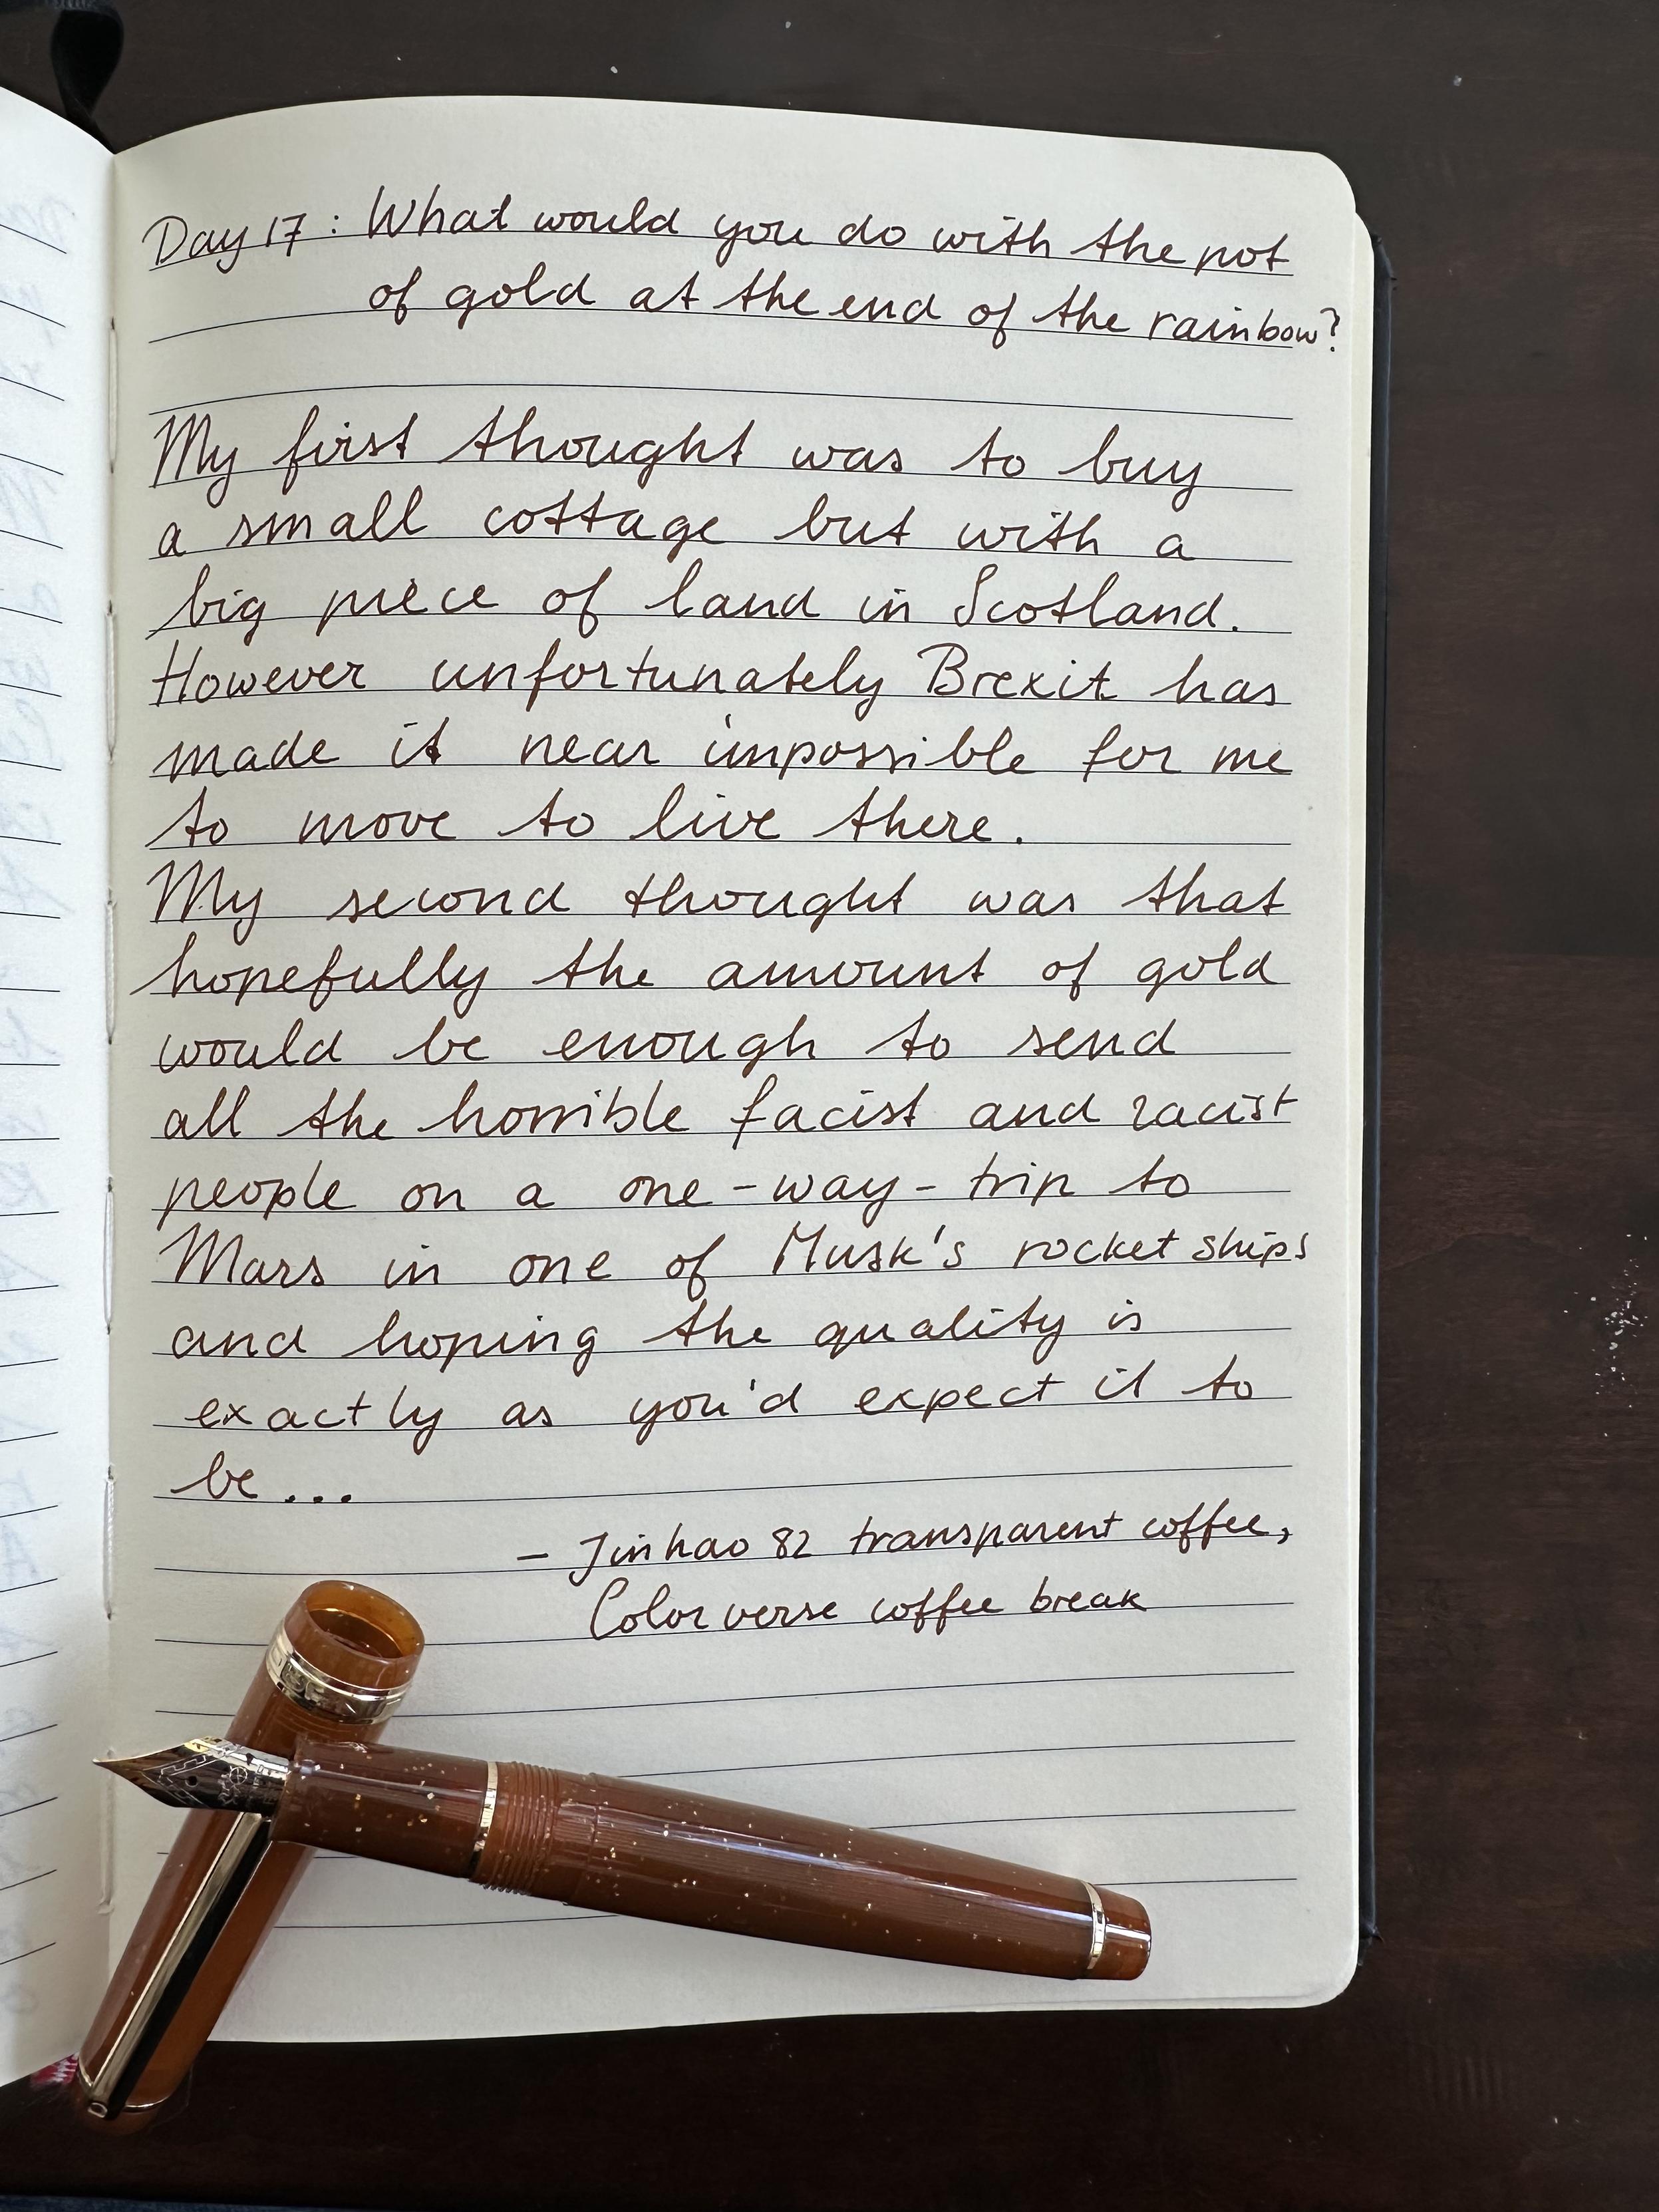 Day 17: What would you do with the pot
of gold at the end of the rainbow?
My first thought was to buy
a small cottage but with a
big piece of land in Scotland.
However unfortunately Brexit has
made it near impossible for me
to move to live there.
My second thought was that
hopefully the amount of gold
would be enough to send
all the horrible facist and racist
people on a one-way-trip to
Mars in one of Musk's rocket ships
and hoping the quality is
exactly as you'd expect it to
be...
– Jinhao 82 transparent coffee,
Colorverse coffee break